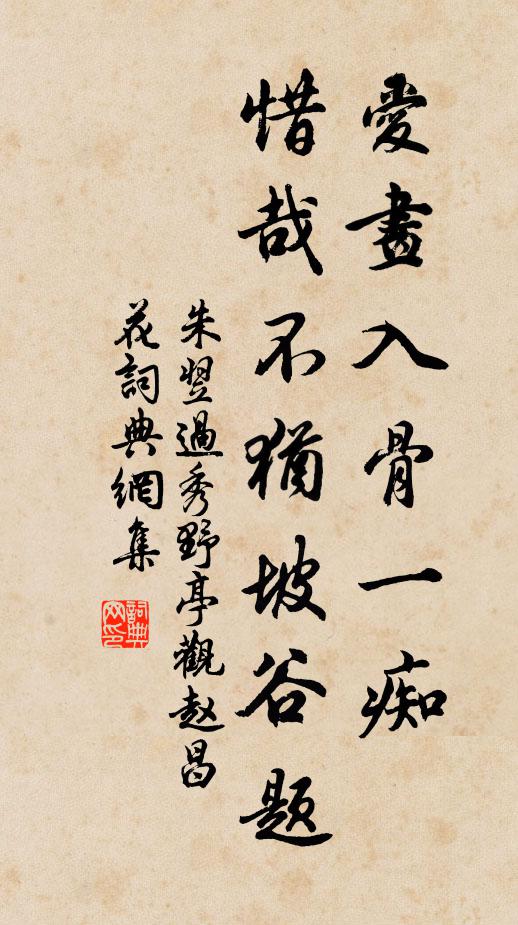 愛畫入骨一痴
惜哉不猶坡谷題
朱翌過秀野亭觀赵昌
花詞典網集
詞典网印